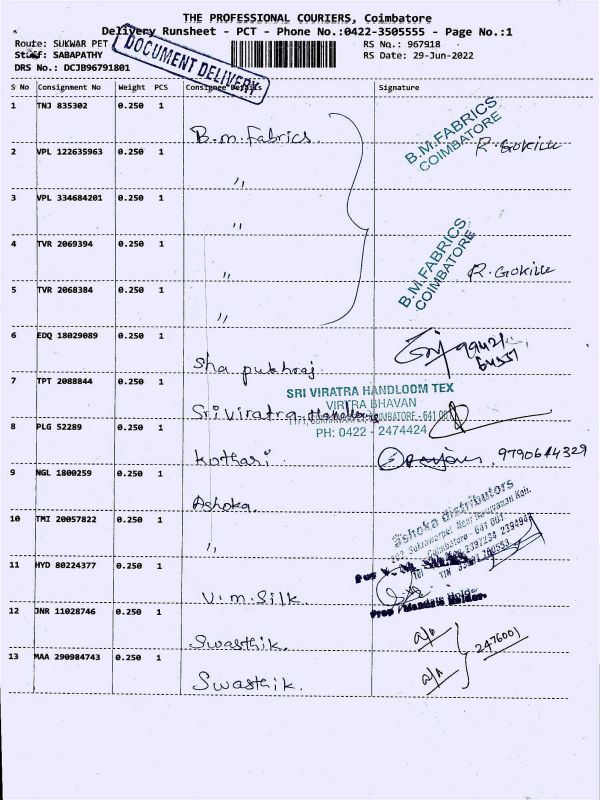 THE PROFESSIONAL COURIERS, Coimbatore
Delivery Runsheet - PCT - Phone No.:0422-3505555 - Page No.:1
Route: SUKWAR PET
RS No.: 967918
Staff: SABAPATHY
RS Date: 29-Jun-2022
DRS No.: DCJB96791801
DOCUMENT DELIVERY
S No Consignment No Weight PCS Consignee Details Signature
1 TNJ 835302 0.250 1
B.M.FABRICS
COIMBATORE
B.m.Fabrics.
2 VPL 122635963 0.250 1
〃
3 VPL 334684201 0.250 1
〃
4 TVR 2069394 0.250 1
B.M.FABRICS
COIMBATORE
〃
5 TVR 2068384 0.250 1
〃
6 EDQ 18029089 0.250 1
Sha pukhraj
7 TPT 2088844 0.250 1
SRI VIRATRA HANDLOOM TEX
VIRTRA BHAVAN
COIMBATORE - 641 001
PH: 0422 - 2474424
Sri Viratra Handloom
8 PLG 52289 0.250 1
Kothari
9790644329
9 NGL 1800259 0.250 1
Ashoka.
Ashoka distributors
10 TMI 20057822 0.250 1
Coimbatore - 641 001
〃
11 HYD 80224377 0.250 1
V.m.Silk
12 JNR 11028746 0.250 1
Swasthik.
a/a
2476001
13 MAA 290984743 0.250 1
Swasthik.
a/a